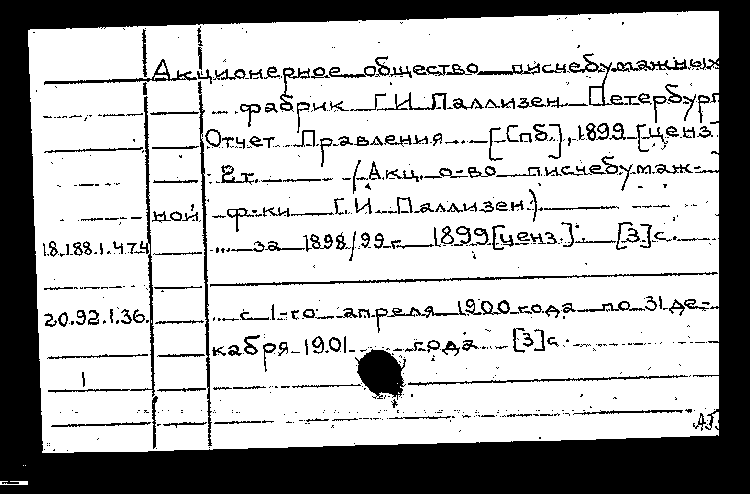 Акционерное общество писчебумажных
фабрик Г.И. Паллизен. Петербург
Отчет Правления... [Спб.], 1899 [ценз.
2 т. (Акц. о-во писчебумаж-
ной ф-ки Г.И. Паллизен.)
18.188.1.474 ... за 1898/99 г. 1899 [ценз.]. [3] с.
20.92.1.36. ... с 1-го апреля 1900 года по 31 де-
кабря 1901 года [3] с.
1